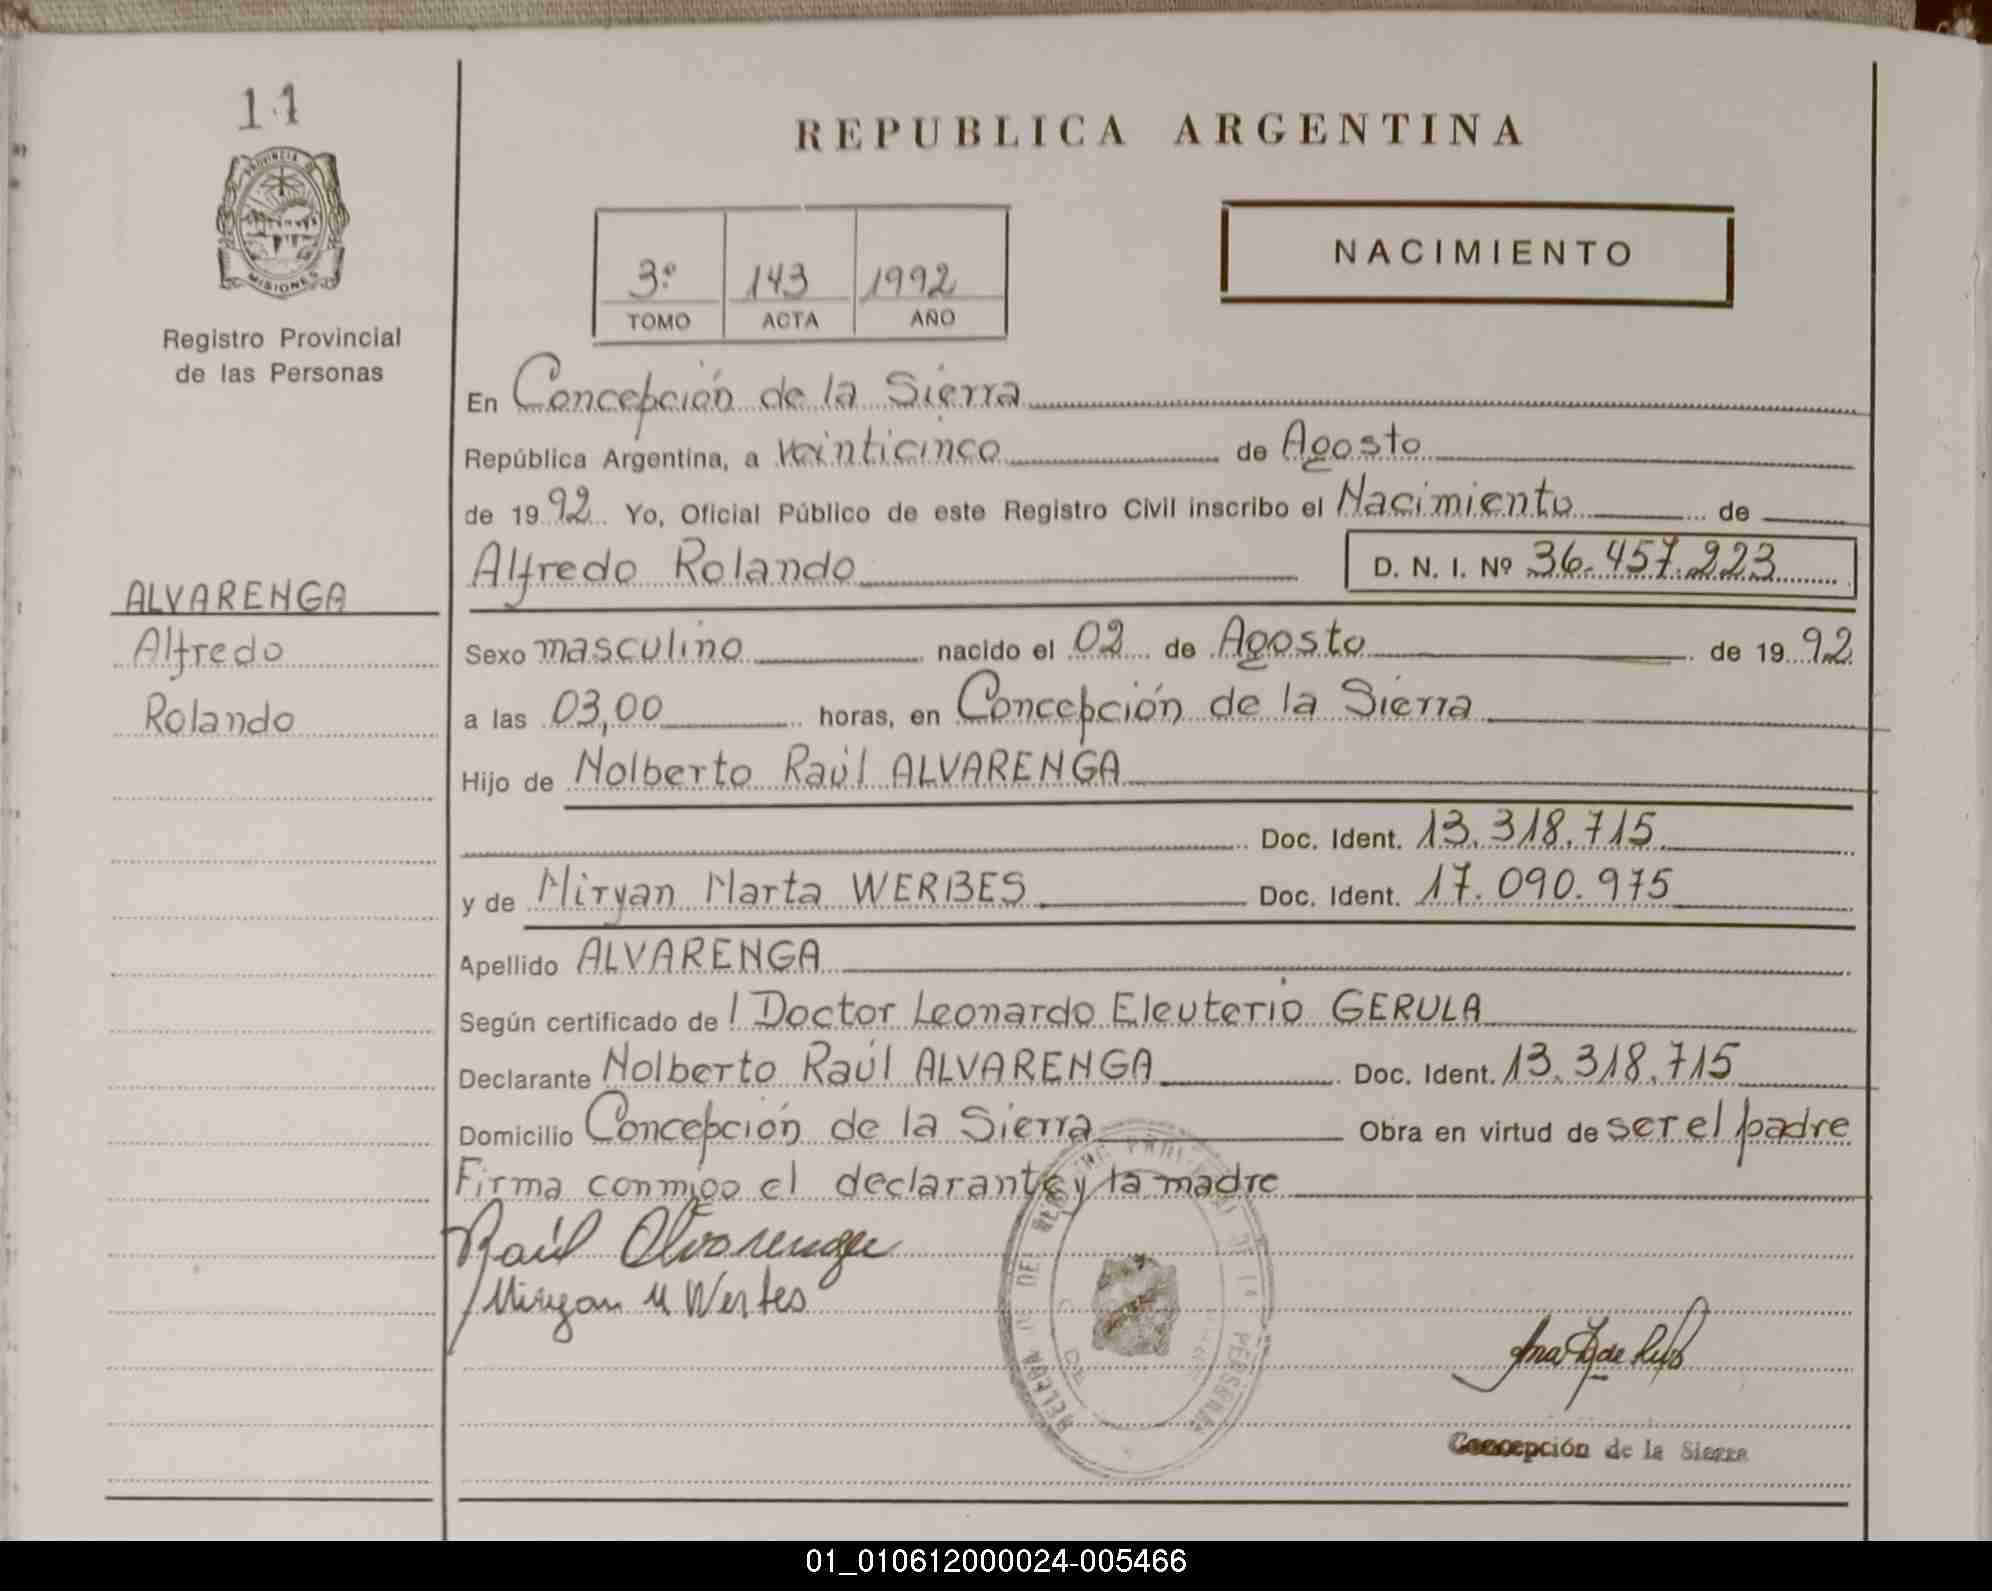 11
REPUBLICA ARGENTINA
PROVINCIA DE
MISIONES
Registro Provincial
de las Personas
3º 143 1992
TOMO ACTA AÑO
NACIMIENTO
En Concepción de la Sierra
República Argentina, a veinticinco de Agosto
de 1992 Yo, Oficial Público de este Registro Civil inscribo el Nacimiento de
Alfredo Rolando D. N. I. Nº 36.457.223
ALVARENGA
Alfredo
Rolando
Sexo masculino nacido el 02 de Agosto de 1992
a las 03,00 horas, en Concepción de la Sierra
Hijo de Nolberto Raúl ALVARENGA
Doc. Ident. 13.318.715
y de Miryan Marta WERBES Doc. Ident. 17.090.975
Apellido ALVARENGA
Según certificado del Doctor Leonardo Eleuterio GERULA
Declarante Nolberto Raúl ALVARENGA Doc. Ident. 13.318.715
Domicilio Concepción de la Sierra Obra en virtud de ser el padre
Firma conmigo el declarante y la madre
Raúl Alvarenga
Miryan M Werbes
Concepción de la Sierra
01_010612000024-005466